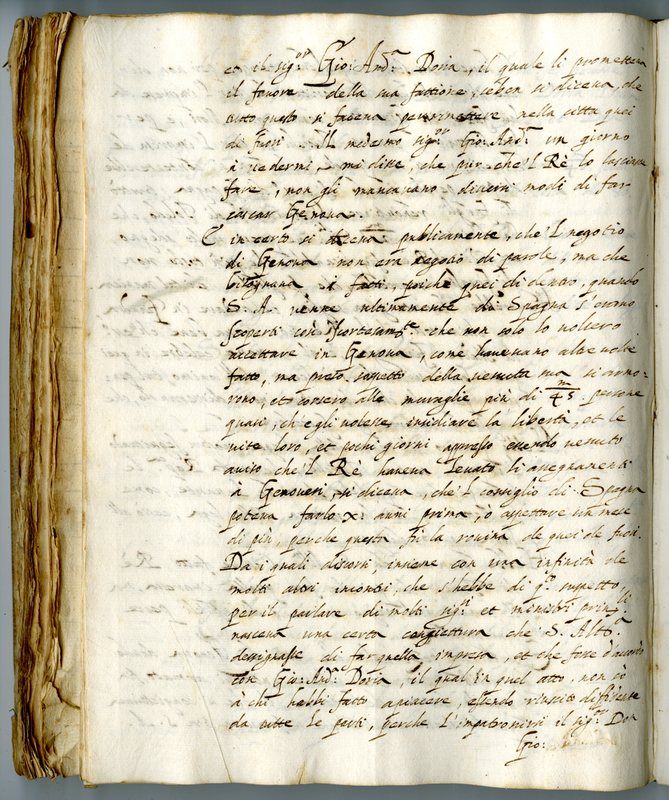 et il sig.or Gio: And.a Doria, il quale li prometteva
il favore della sua fattione, seben si diceva, che
tutto questo si faceva per rimettere nella città quei
di fuori. Il medesmo sig.or Gio: And.a un giorno
à vedermi, mi disse, che pur che'l Rè lo lasciasse
fare, non gli mancariano diversi modi di far
cascar Genova.
E in certo si diceva publicamente, che'l negotio
di Genova non era negotio di parole, ma che
bisognava i fatti, poiche quei di dentro, quando
S. A. venne ultimamente di Spagna s'erano
scoperti così che non solo lo volsero
accettare in Genova, come havevano altre volte
fatto, ma preso sospetto della venuta sua si armo-
rono, et corsero alle muraglie più di 45 m persone
quasi, ch'egli volesse insidiare la libertà, et le
vite loro, et pochi giorni appresso essendo venuto
aviso che'l Rè haveva levato li assegnamenti
à Genovesi, si diceva, che'l consiglio di Spagna
poteva farlo x. anni prima, ò aspettare un mese
di più, perche questa fù la rovina de quei de fuori.
Da i quali discorsi, insieme con una infinità de
molti altri incontri, che s'hebbe di q.o sospetto
per il parlare di molti sig.ri et ministri prin.li
nasceva una certa congiettura che S. Alt.a
dessignasse di far quella impresa, et che fosse d'accordo
con Gio: And.a Doria, il qual in quel atto, non sò
à chi habbi fatto apiacere, essendo riuscito diffidente
da tutte le parti, perche l'impatronirsi il sig.or Don
Gio: